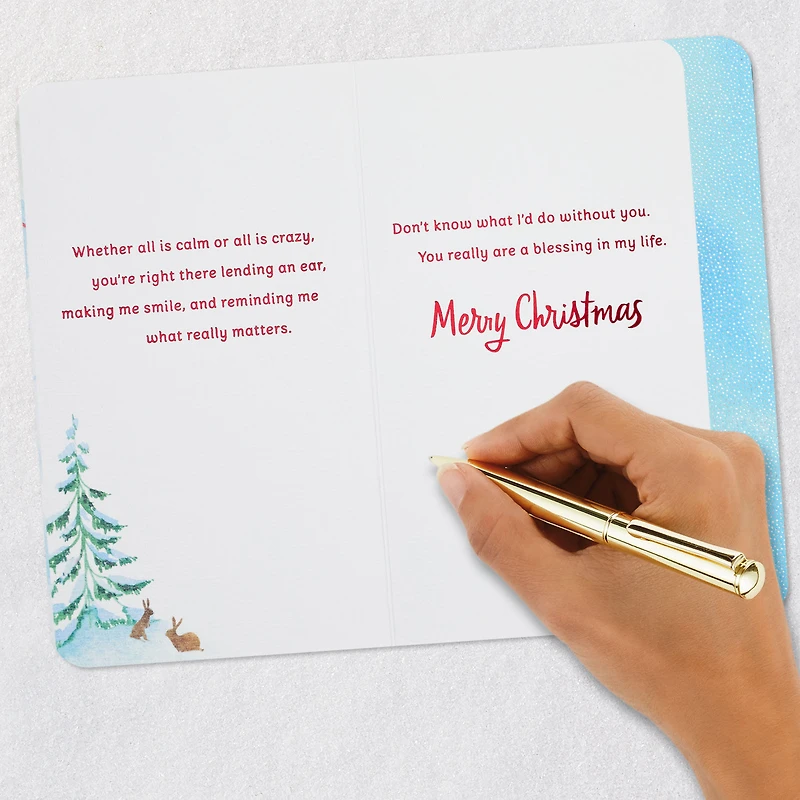 Whether all is calm or all is crazy,
you're right there lending an ear,
making me smile, and reminding me
what really matters.
Don't know what I'd do without you.
You really are a blessing in my life.
Merry Christmas